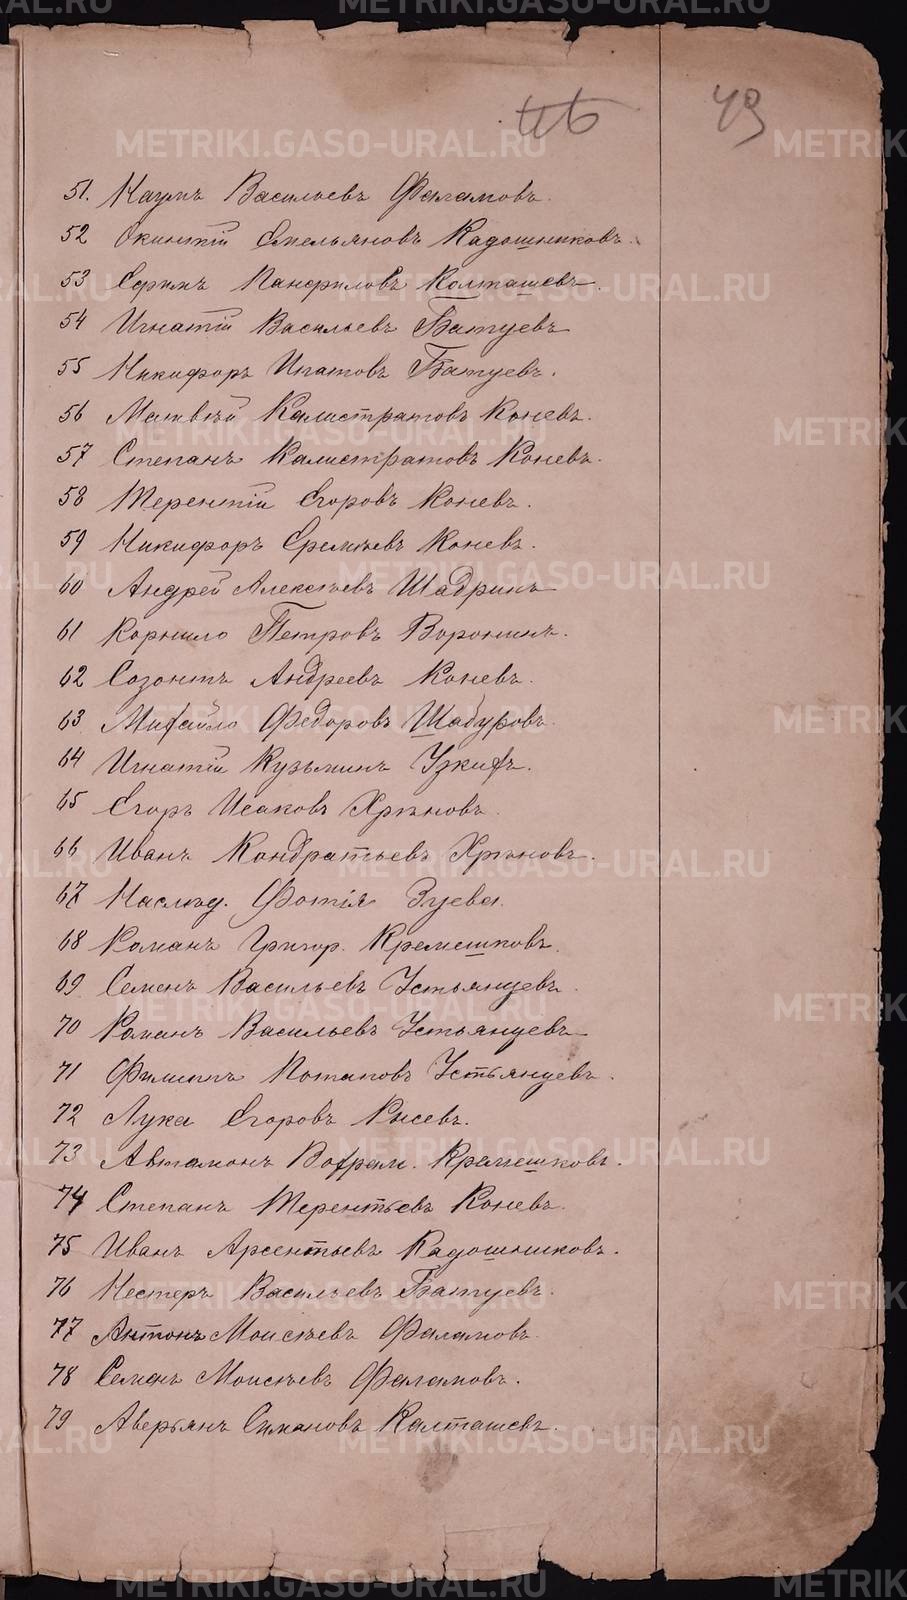 46 49
51. Наумъ Васильевъ Фаламовъ.
52 Окинтій Емельяновъ Кадошниковъ.
53 Ефимъ Панфиловъ Колташевъ.
54 Игнатій Васильевъ Батуевъ
55 Никифоръ Ипатовъ Батуевъ.
56 Матвѣй Калистратовъ Коневъ.
57 Степанъ Калистратовъ Коневъ.
58 Терентій Егоровъ Коневъ.
59 Никифоръ Еремѣевъ Коневъ.
60 Андрей Алексѣевъ Шадринъ
61 Корнило Петровъ Воронинъ.
62 Созонтъ Андреевъ Коневъ.
63 Михайло Федоровъ Шабуровъ.
64 Игнатій Кузьминъ Узкихъ.
65 Егоръ Исаковъ Хрѣновъ.
66 Иванъ Кондратьевъ Хрѣновъ.
67 Наслѣд. Фотія Зуева.
68 Романъ Григор. Кремешковъ.
69 Семенъ Васильевъ Устьянцевъ.
70 Романъ Васильевъ Устьянцевъ
71 Филиппъ Потаповъ Устьянцевъ.
72 Лука Егоровъ Рысевъ.
73 Автамонъ Вахрам. Кремешковъ.
74 Степанъ Терентьевъ Коневъ.
75 Иванъ Арсентьевъ Кадошниковъ.
76 Нестеръ Васильевъ Батуевъ.
77 Антонъ Моисѣевъ Фаламовъ.
78 Семенъ Моисѣевъ Фаламовъ.
79 Аверьянъ Симановъ Калташевъ.
METRIKI.GASO-URAL.RU